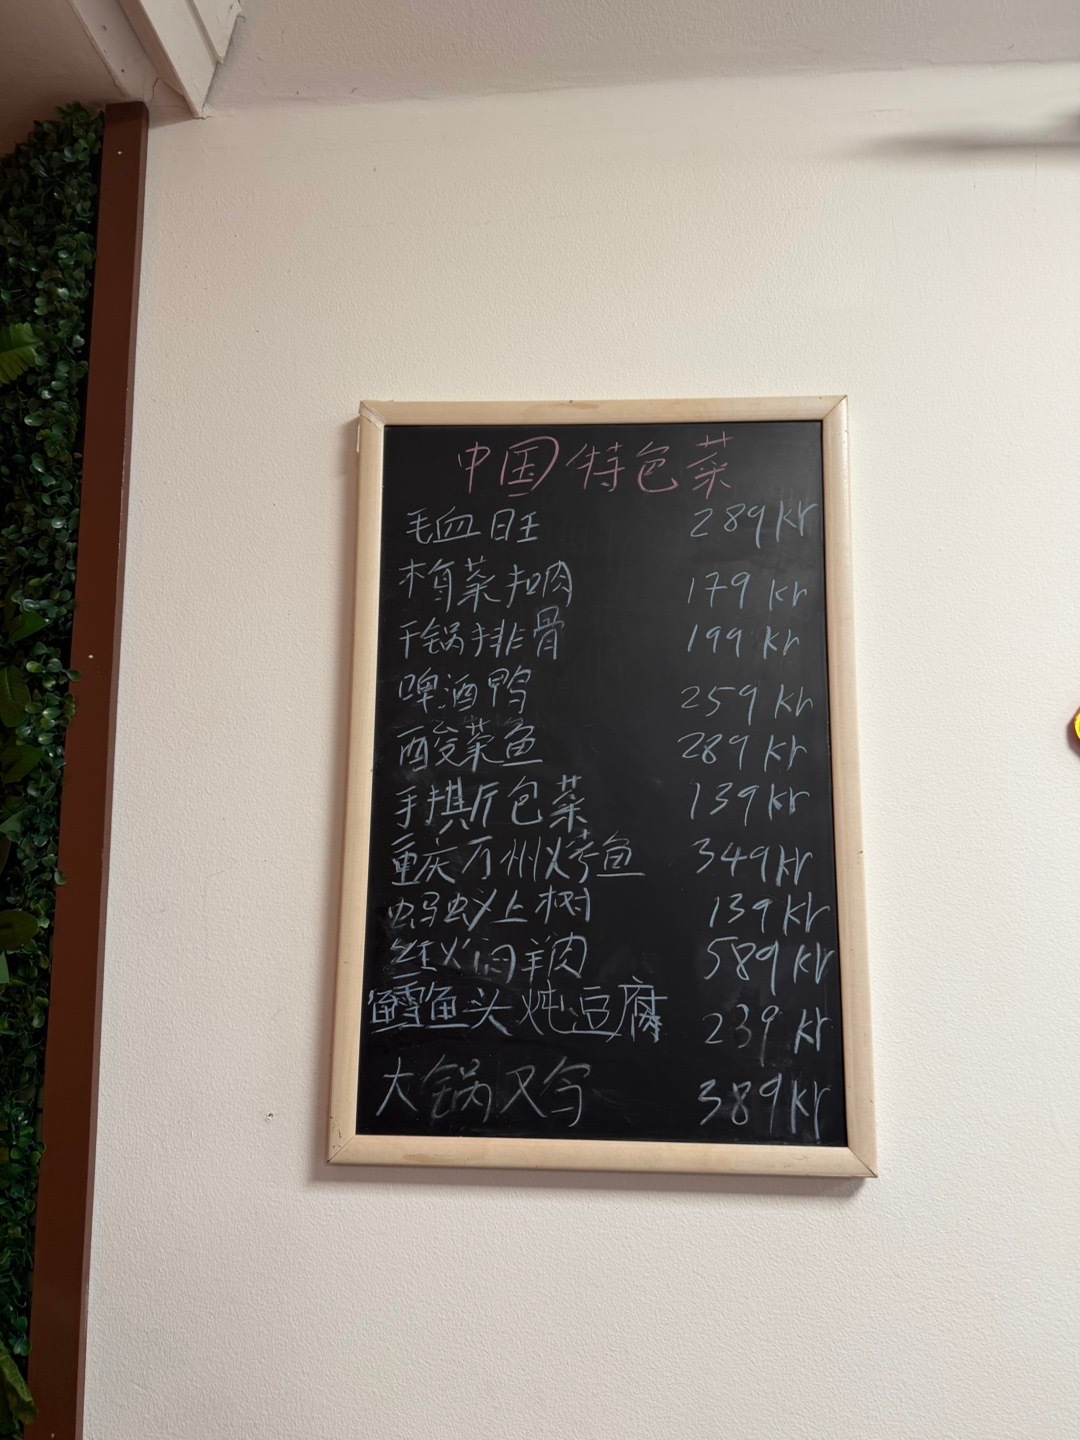 中国特色菜
毛血旺 289kr
梅菜扣肉 179kr
干锅排骨 199kr
啤酒鸭 259kr
酸菜鱼 289kr
手撕包菜 139kr
重庆万州烤鱼 349kr
蚂蚁上树 139kr
红火焖羊肉 589kr
鳕鱼头炖豆腐 239kr
大锅 389kr